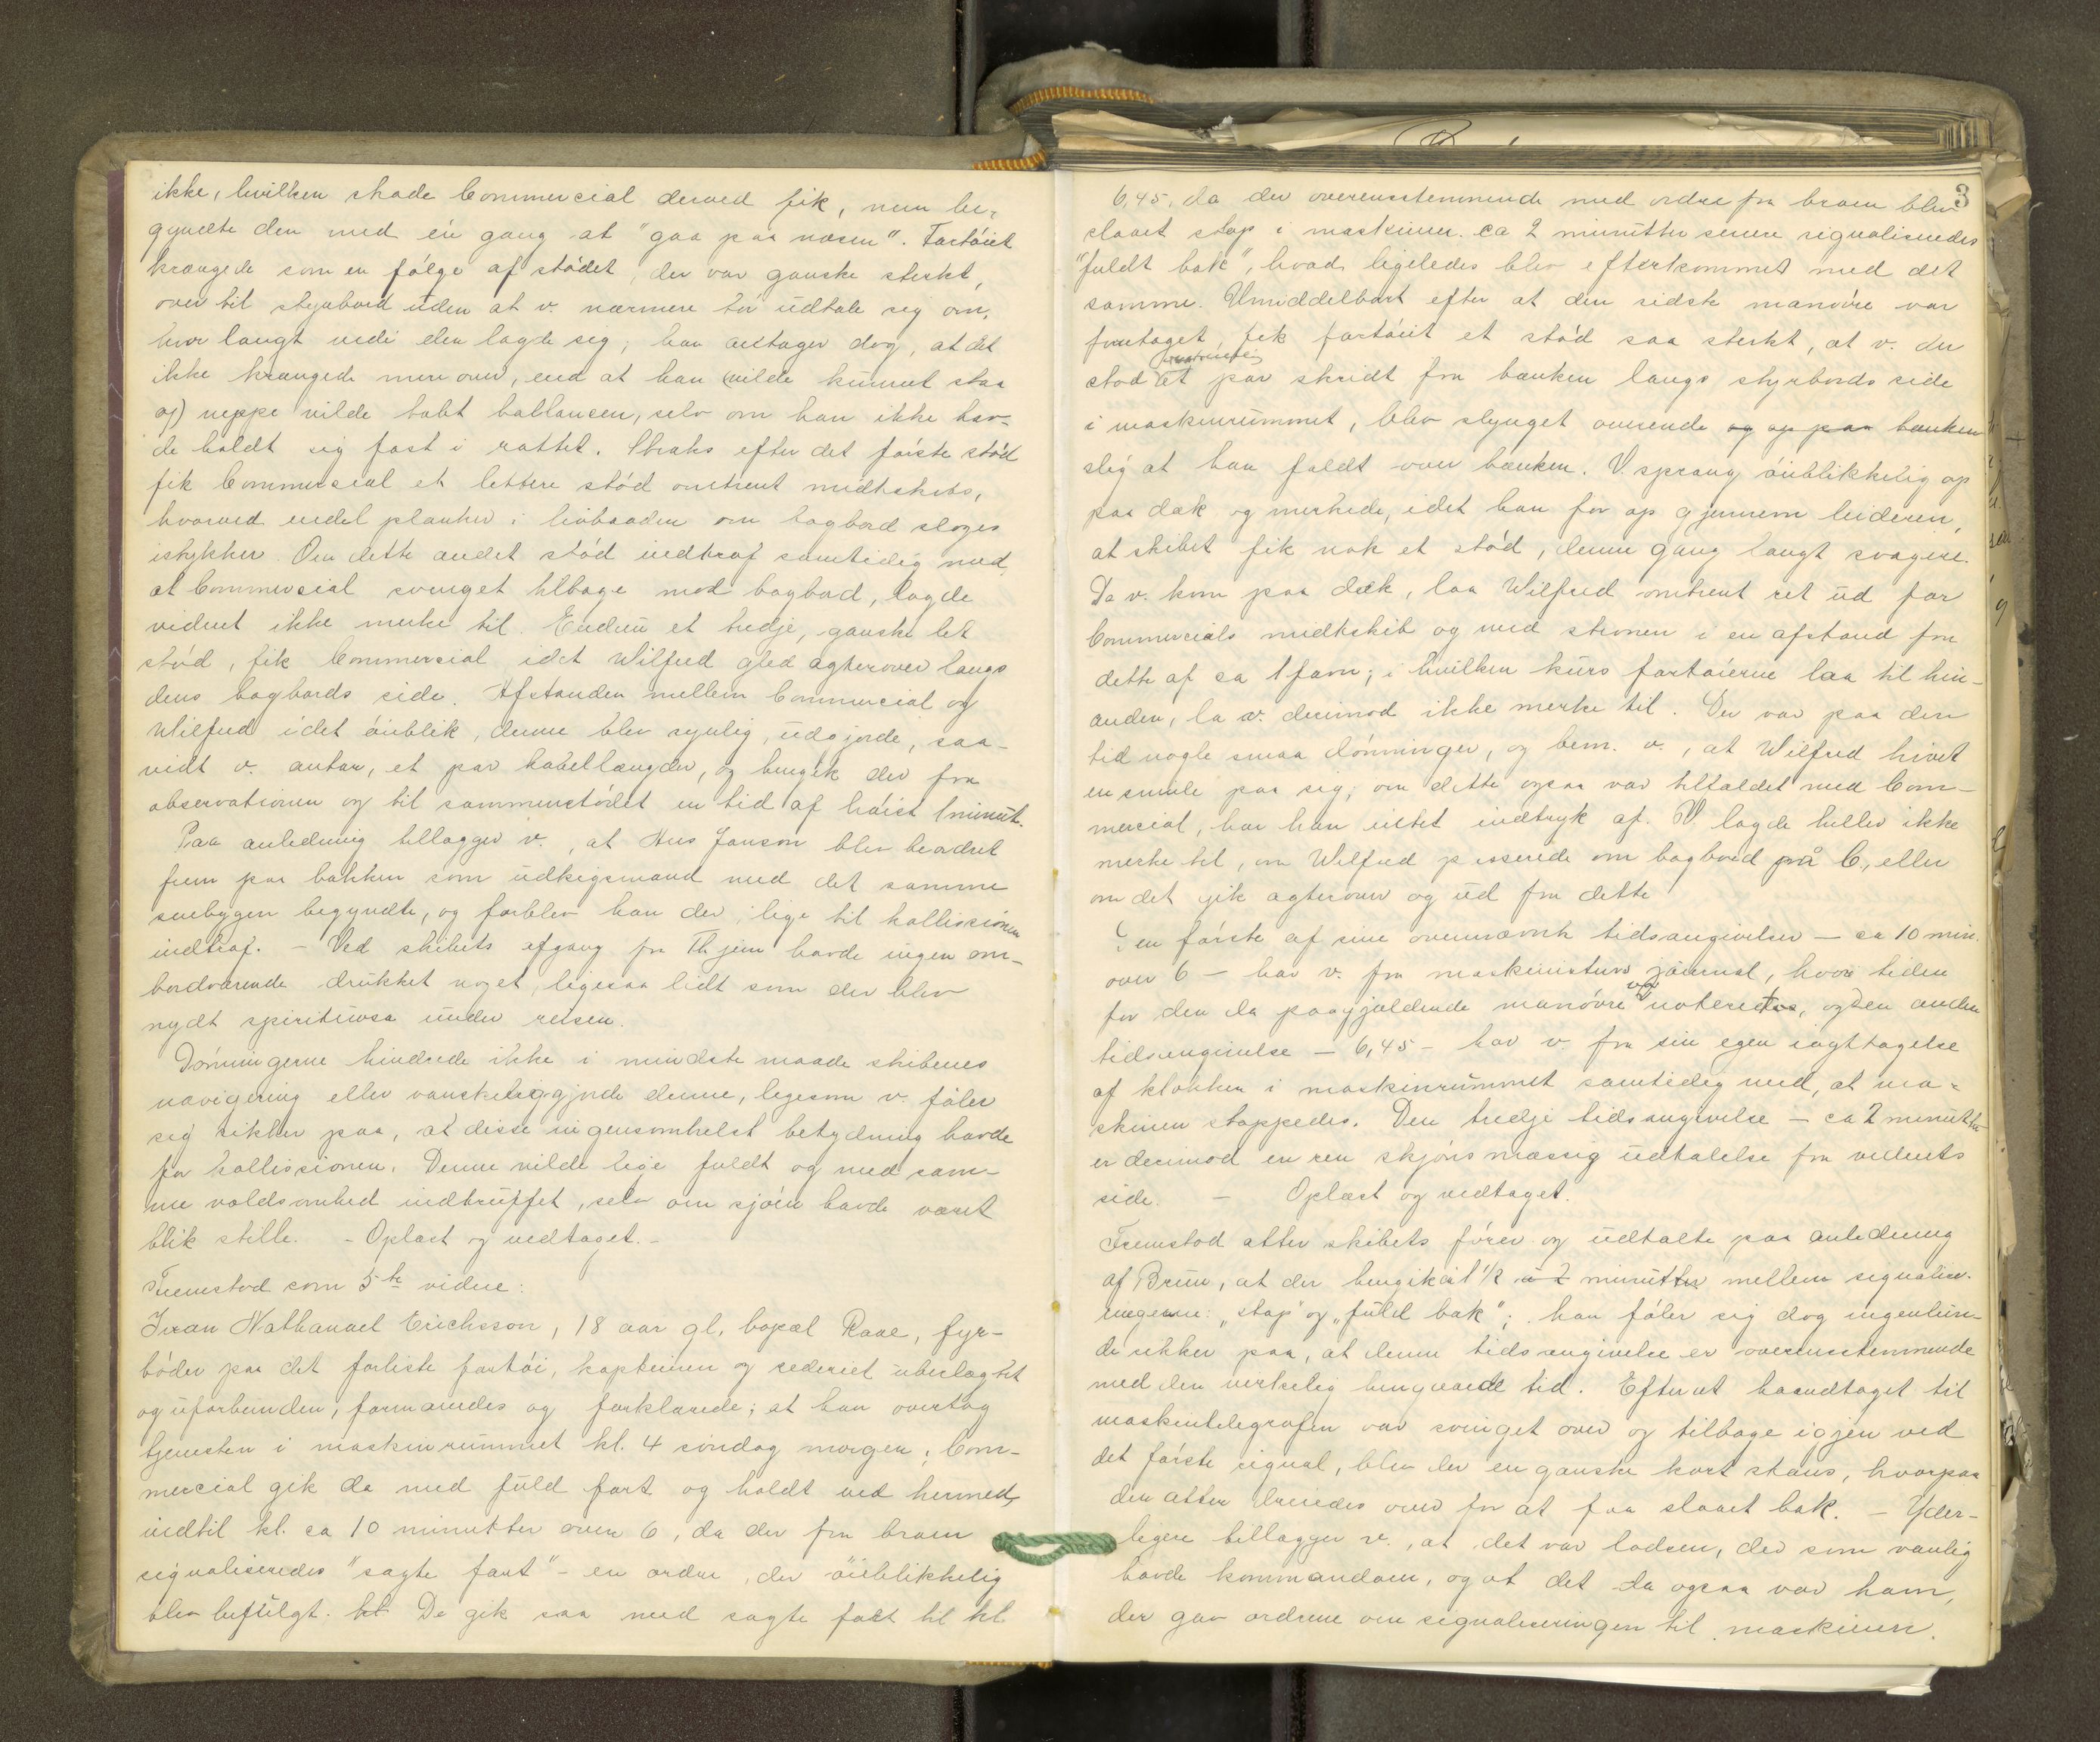 ikke, hvilken skade Commercial derved fik, men be-
gyndte den med én gang at "gaa paa næsen". Fartöiet
krængede som en fölge af stödet, der var ganske sterkt,
over til styrbord uden at v. nærmere tör udtale sig om,
hvor langt nedi den lagde sig; han antager dog, at det
ikke krængede mere over, end at han (vilde kunnet staa
og) neppe vilde tabt ballancen, selv om han ikke hav-
de holdt sig fast i rattet. Straks efter det förste stöd
fik Commercial et lettere stöd omtrent midtskibs,
hvorved endel planker i livbaaden om bagbord sloges
istykker. Om dette andet stöd indtraf samtidig med,
at Commercial svinget tilbage mod bagbord, lagde
vidnet ikke merke til. Endnu et tredje, ganske let
stöd, fik Commercial idet Wilfred gled agterover langs
dens bagbords side. Afstanden mellem Commercial og
Wilfred i det öieblik, denne blev synlig, udgjorde, saa-
vidt v. antar, et par kabellængder, og hengik der fra
observationen og til sammenstödet en tid af höist 1 minut.
Paa anledning tillægger v., at Hns Janson blev beordret
frem paa bakken som udkigsmand med det samme
snebygen begyndte, og forblev han der, lige til kollissionen
indtraf. - Ved skibets afgang fra Thjem havde ingen om-
bordværende drukket noget, ligesaa lidt som der blev
nydt spirituosa under reisen.
Dönningerne hindrede ikke i mindste maade skibenes
navigering eller vanskeliggjorde denne, ligesom v. föler
sig sikker paa, at disse ingensomhelst betydning havde
for kollissionen. Denne vilde lige fuldt og med sam-
me voldsomhed indtruffet, selv om sjöen havde været
blik stille. - Oplæst og vedtaget. -
Fremstod som 5te vidne:
Johan Nathanael Erichsson, 18 aar gl., bopæl Raae, fyr-
böder paa det forliste fartöi, kapteinen og rederiet ubeslægtet
og uforbunden, formanedes og forklarede; at han overtog
tjenesten i maskinrummet kl. 4 söndag morgen; Com-
mercial gik da med fuld fart og holdt ved hermed,
indtil kl. ca 10 minutter over 6, da der fra broen
signaliseredes "sagte fart" - en ordre, der öieblikkelig
blev befulgt. kl. De gik saa med sagte fart til kl.
3
6,45, da der overensstemmende med ordre fra broen blev
slaaet stop i maskinen. ca 2 minutter senere signaliseredes
"fuldt bak", hvad ligeledes blev efterkommet med det
samme. Umiddelbart efter at den sidste manövre var
foretaget, fik fartöiet et stöd saa sterkt, at v. der
stod et par skridt fra bænken langs styrbords side
i maskinrummet, blev slynget overende og op paa bænken
slig at han faldt over bænken. V. sprang öieblikkelig op
paa dæk og merkede, idet han for op gjennem leideren,
at skibet fik nok et stöd, denne gang langt svagere.
Da v. kom paa dæk, laa Wilfred omtrent ret ud for
Commercials midtskib og med stevnen i en afstand fra
dette af ca 1 favn; i hvilken kurs fartöierne laa til hin-
anden, la v. derimod ikke merke til. Der var paa den
tid nogle smaa dönninger, og bem. v., at Wilfred hivet
en smule paa sig; om dette ogsaa var tilfældet med Com-
mercial, har han intet indtryk af. V. lagde heller ikke
merke til, om Wilfred passerede om bagbord på C., eller
om det gik agterover og ud fra dette
Den förste af sine ovennævnte tidsangivelser - ca 10 min.
over 6 - har v. fra maskinisterns journal, hvor tiden
for den da paagjældende manövre noteredes, og den anden
tidsangivelse - 6,45 - har v. fra sin egen iagttagelse
af klokken i maskinrummet samtidig med, at ma-
skinen stoppedes. Den tredje tidsangivelse - ca 2 minutter
er derimod en ren skjönsmæssig udtalelse fra vidnets
side. - Oplæst og vedtaget.
Fremstod atter skibets förer og udtalte paa anledning
af Bruun, at der hengik ca 1 1/2 á 2 minutter mellem signaliser-
ingerne: "stop" og "fuld bak"; han föler sig dog ingenlun-
de sikker paa, at denne tidsangivelse er overensstemmende
med den verkelig hengaaede tid. Efterat haandtaget til
maskintelegrafen var svinget over og tilbage igjen ved
det förste signal, blev der en ganske kort stans, hvorpaa
den atter dreiedes over for at faa slaaet bak. - Yder-
ligere tillægger v., at det var lodsen, der som vanlig
havde kommandoen, og at det da ogsaa var ham,
der gav ordrene om signaliseringen til maskinen.